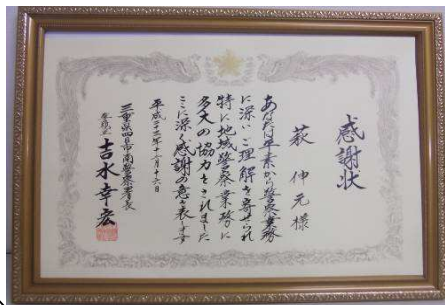 感謝状
萩 伸元 様
あなたは平素から警察業務
に深いご理解を寄せられ
特に地域警察業務に
多大の協力をされました
ここに深く感謝の意を表します
平成二十二年十二月十六日
三重県四日市南警察署長
警視正 吉水幸宏